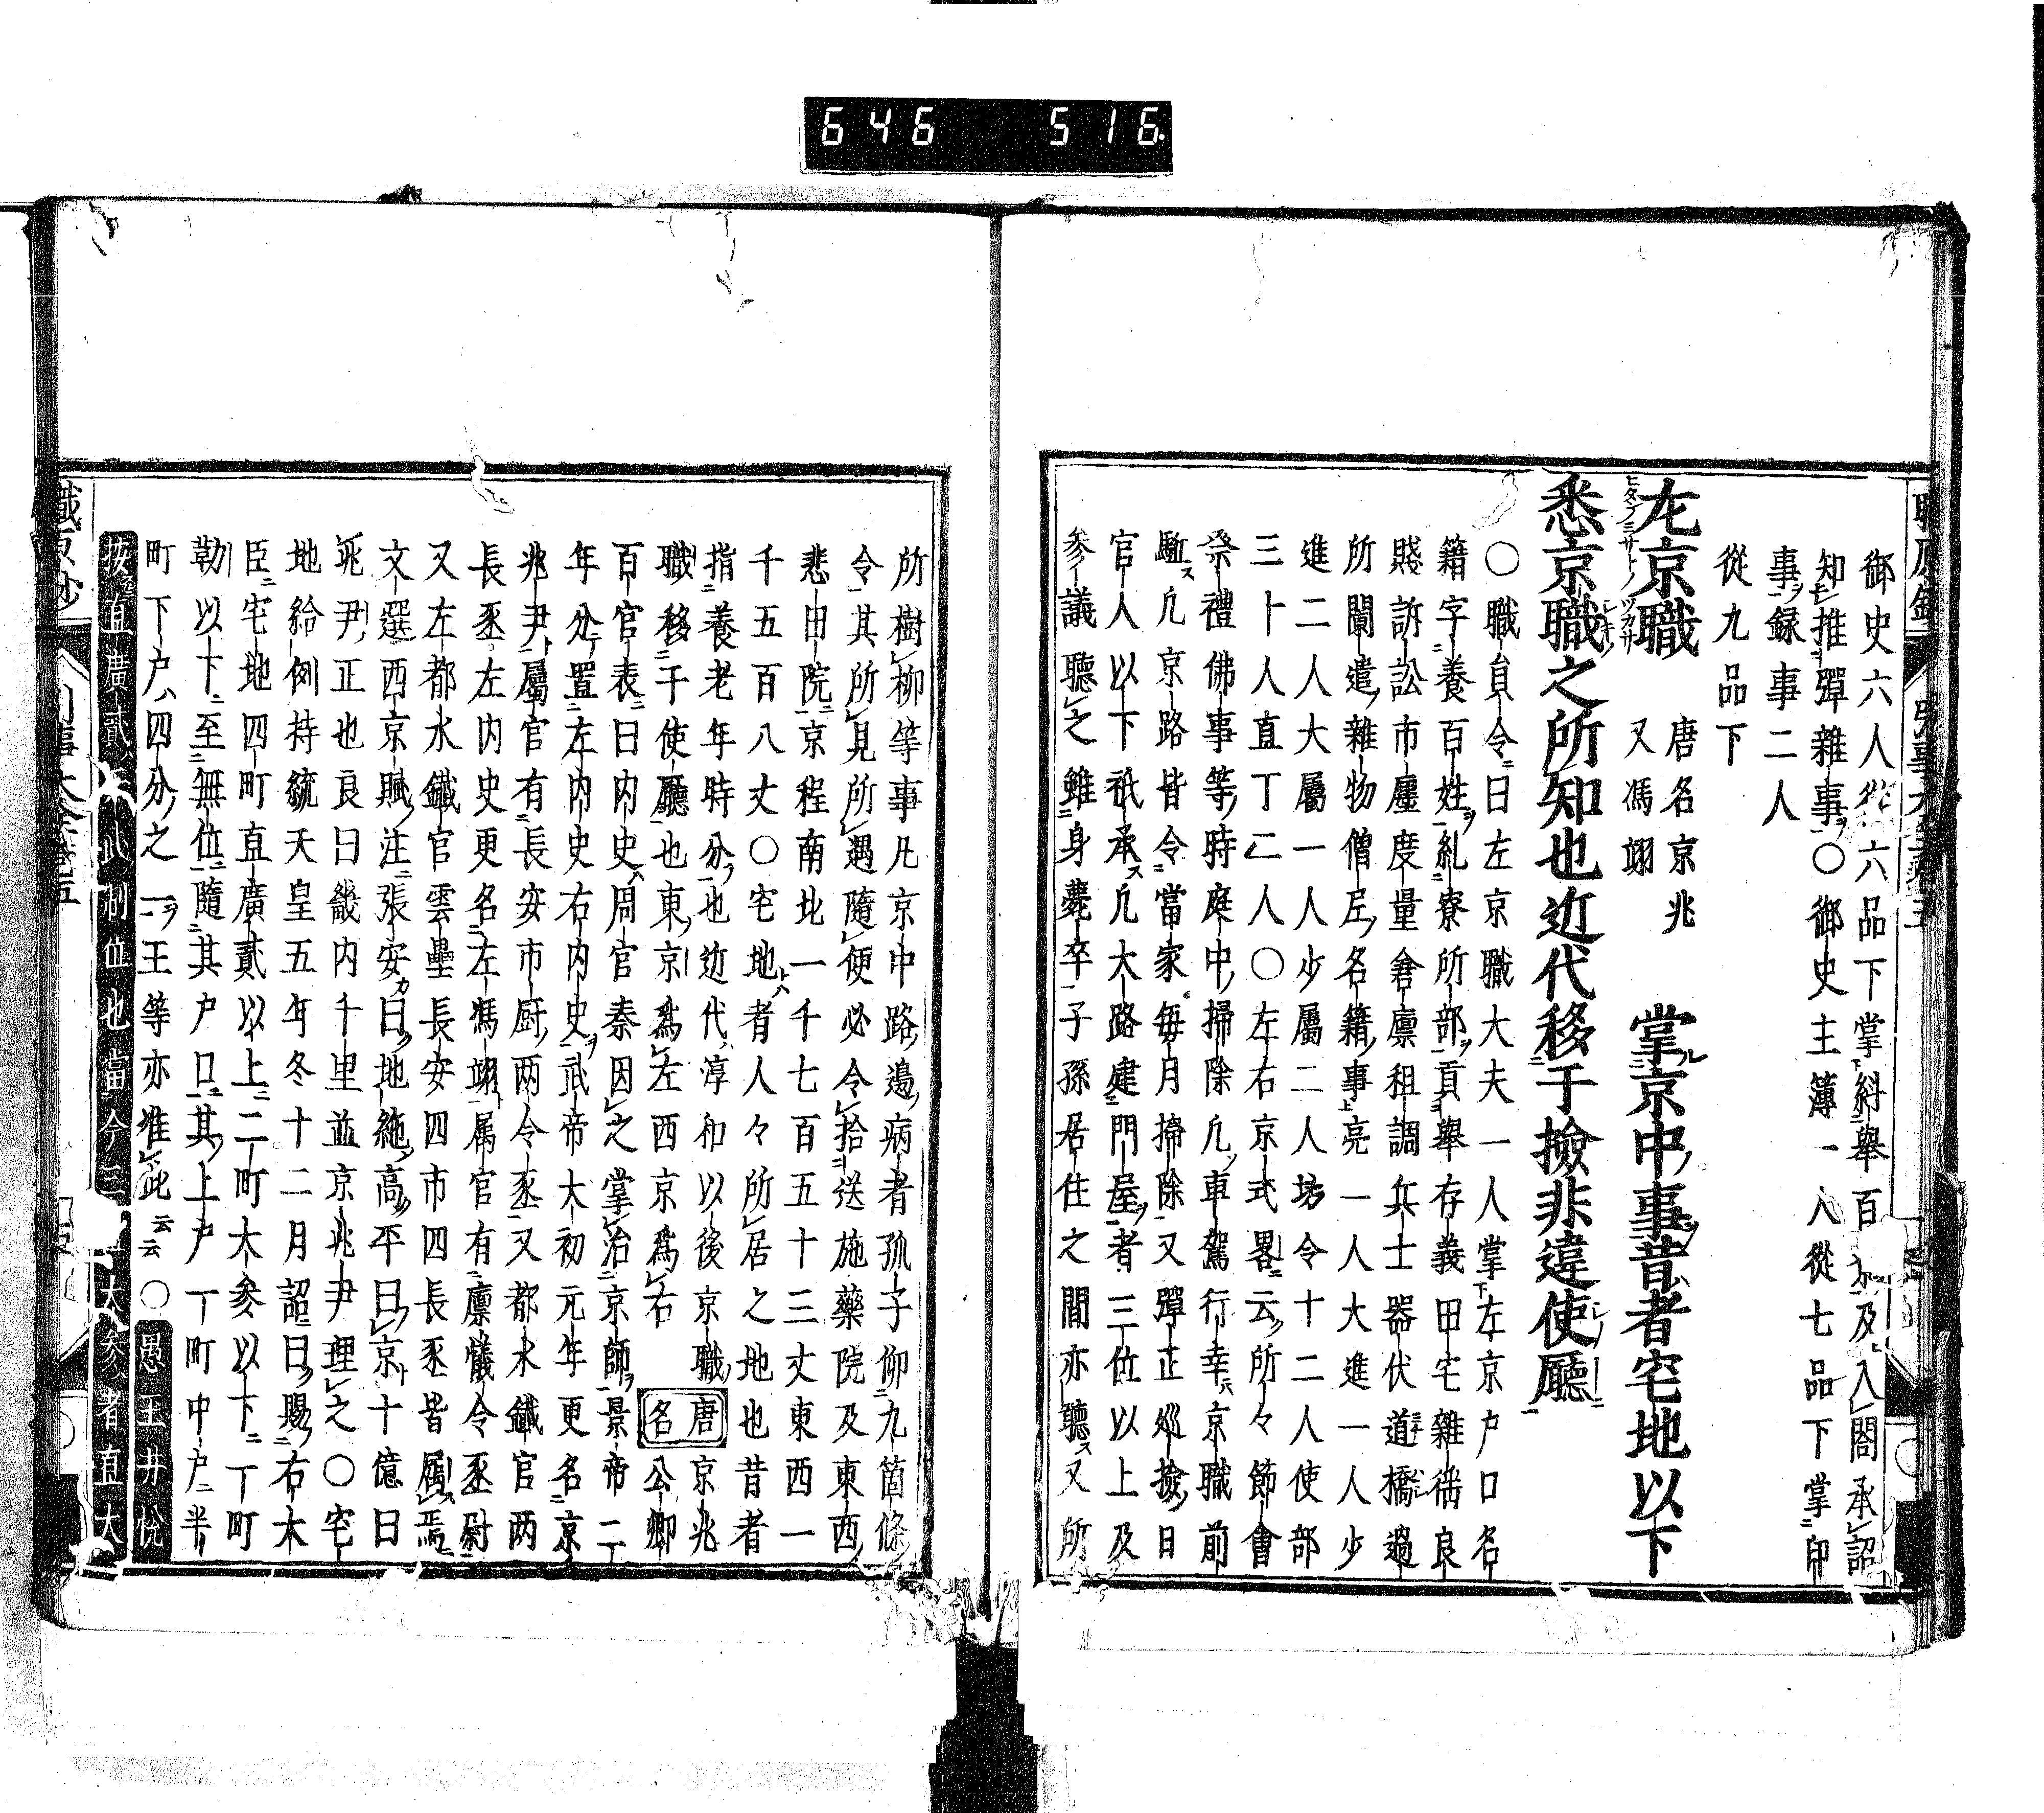 646 516
御史六人從六品下掌糾舉百及入閤承詔
知推彈雜事○御史主簿一人從七品下掌印
事録事二人
從九品下
左京職 唐名京兆又馮翊 掌京中事昔者宅地以下
ヒタンミサトノツカサ
悉京職之所知也近代移于撿非違使廳
○職員令曰左京職大夫一人掌左京户口名
籍字養百姓糺察所部貢舉存義田宅雜徭良
賤訴訟市廛度量倉廩租調兵士器仗道橋過
所闌遣雜物僧尼名籍事亮一人大進一人少
進二人大屬一人少屬二人坊令十二人使部
三十人直丁二人○左右京式畧云所々節會
祭禮佛事等時庭中掃除凢車駕行幸京職前
駈凢京路皆令當家毎月掃除又彈正巡撿日
官人以下祇承凢大路建門屋者三位以上及
参議聽之雖身薨卒子孫居住之間亦聽又所
所樹柳等事凡京中路邉病者孤子仰九箇條
令其所見所遇隨便必令拾送施藥院及東西
悲田院京程南北一千七百五十三丈東西一
千五百八丈○宅地者人々所居之地也昔者
指養老年時分也近代淳和以後京職唐名京兆
職移于使廳也東京爲左西京爲右 公卿
百官表曰内史周官秦因之掌治京師景帝二
年分置左内史右内史武帝太初元年更名京
兆尹屬官有長安市厨两令丞又都水鐵官两
長丞左内史更名左馮翊属官有廩犠令丞尉
又左都水鐵官雲壘長安四市四長丞皆属焉
文選西京賦注張安曰地絶高平曰京十億曰
兆尹正也良曰畿内千里並京兆尹理之○宅
地給例持統天皇五年冬十二月詔曰賜右大
臣宅地四町直廣貳以上二町大参以下一町
勒以下至無位隨其户口其上户一町中户半
町下户四分之一王等亦准此云云○愚王井悅
按直廣貳此制位也當今三大参者直大